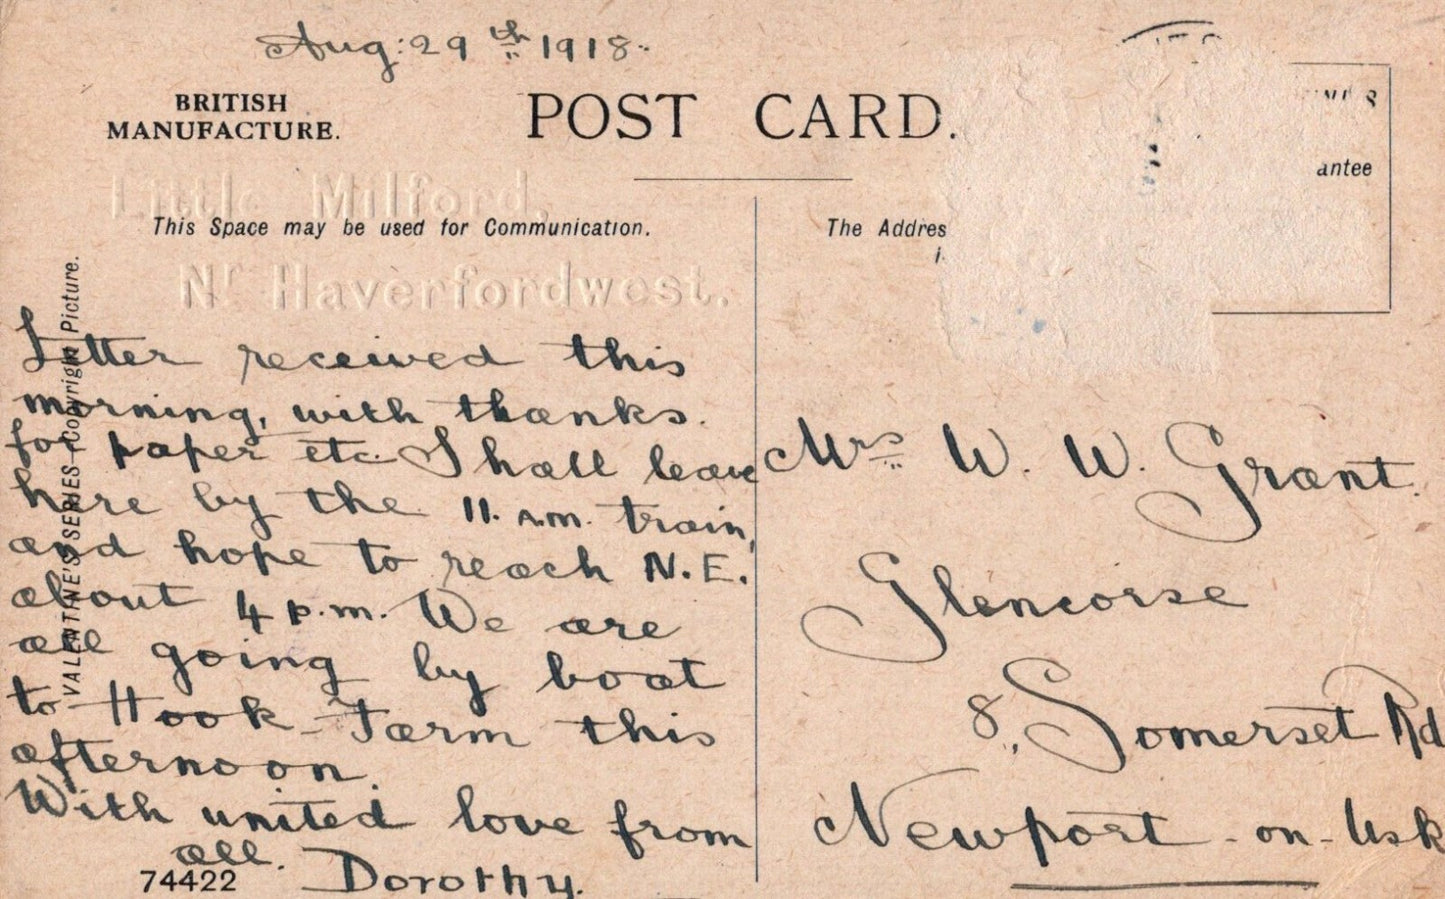 Aug: 29th 1918.
BRITISH
MANUFACTURE.
POST CARD.
Little Milford,
This Space may be used for Communication.
Nr Haverfordwest.
The Addres
antee
VALENTINE'S SERIES Copyright Picture.
Letter received this
morning, with thanks.
for paper etc. Shall leave
here by the 11. A.M. train,
and hope to reach N.E.
about 4 p.m. We are
all going by boat
to Hook-Farm this
afternoon.
With united love from
all. Dorothy.
74422
Mrs W. W. Grant.
Glencorse
8, Somerset Rd
Newport-on-Usk